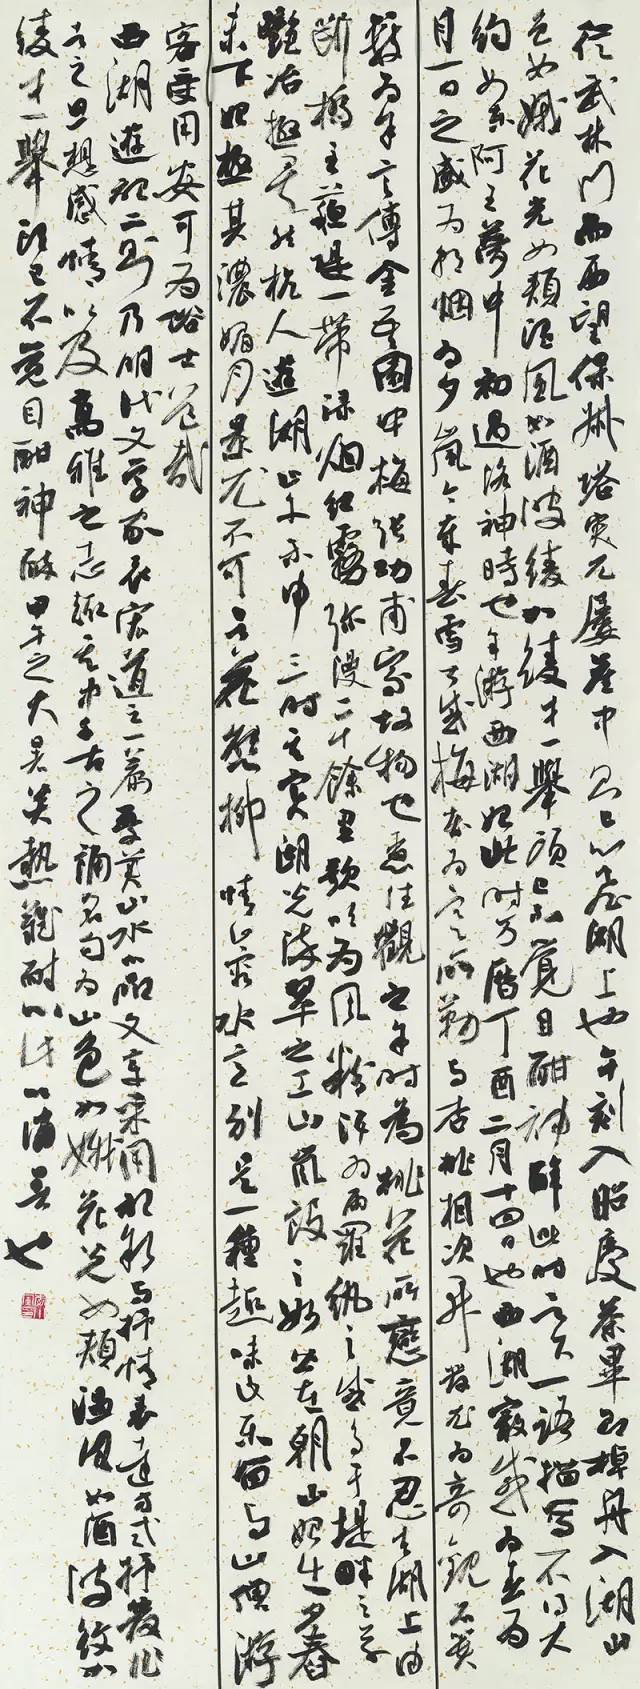 從武林門而西望保俶塔突兀層崖中則已心飛湖上也午刻入昭慶茶畢即棹舟入湖山
色如娥花光如頰溫風如酒波紋如綾才一舉頭已不覺目酣神醉此時欲下一語描寫不得大
約如東阿王夢中初遇洛神時也余游西湖始此時萬曆丁酉二月十四日也西湖最盛為春為
月一日之盛為朝煙為夕嵐今歲春雪甚盛梅花為寒所勒與杏桃相次開發尤為奇觀石簣
數為余言傅金吾園中梅張功甫家故物也急往觀之余時為桃花所戀竟不忍去湖上由
斷橋至蘇堤一帶綠煙紅霧彌漫二十餘里歌吹為風粉汗為雨羅紈之盛多于堤畔之草
艷冶極矣然杭人遊湖止午未申三時其實湖光染翠之工山嵐設色之妙皆在朝日始出夕舂
未下始極其濃媚月景尤不可言花態柳情山容水意別是一種趣味此樂留與山僧游
客受用安可為俗士道哉
西湖遊記二則乃明代文學家袁宏道之
高雅之志趣
山色如娥花光如頰溫風如酒波紋如
綾才一舉頭已不覺目酣神醉甲午之大暑炎熱難耐以此